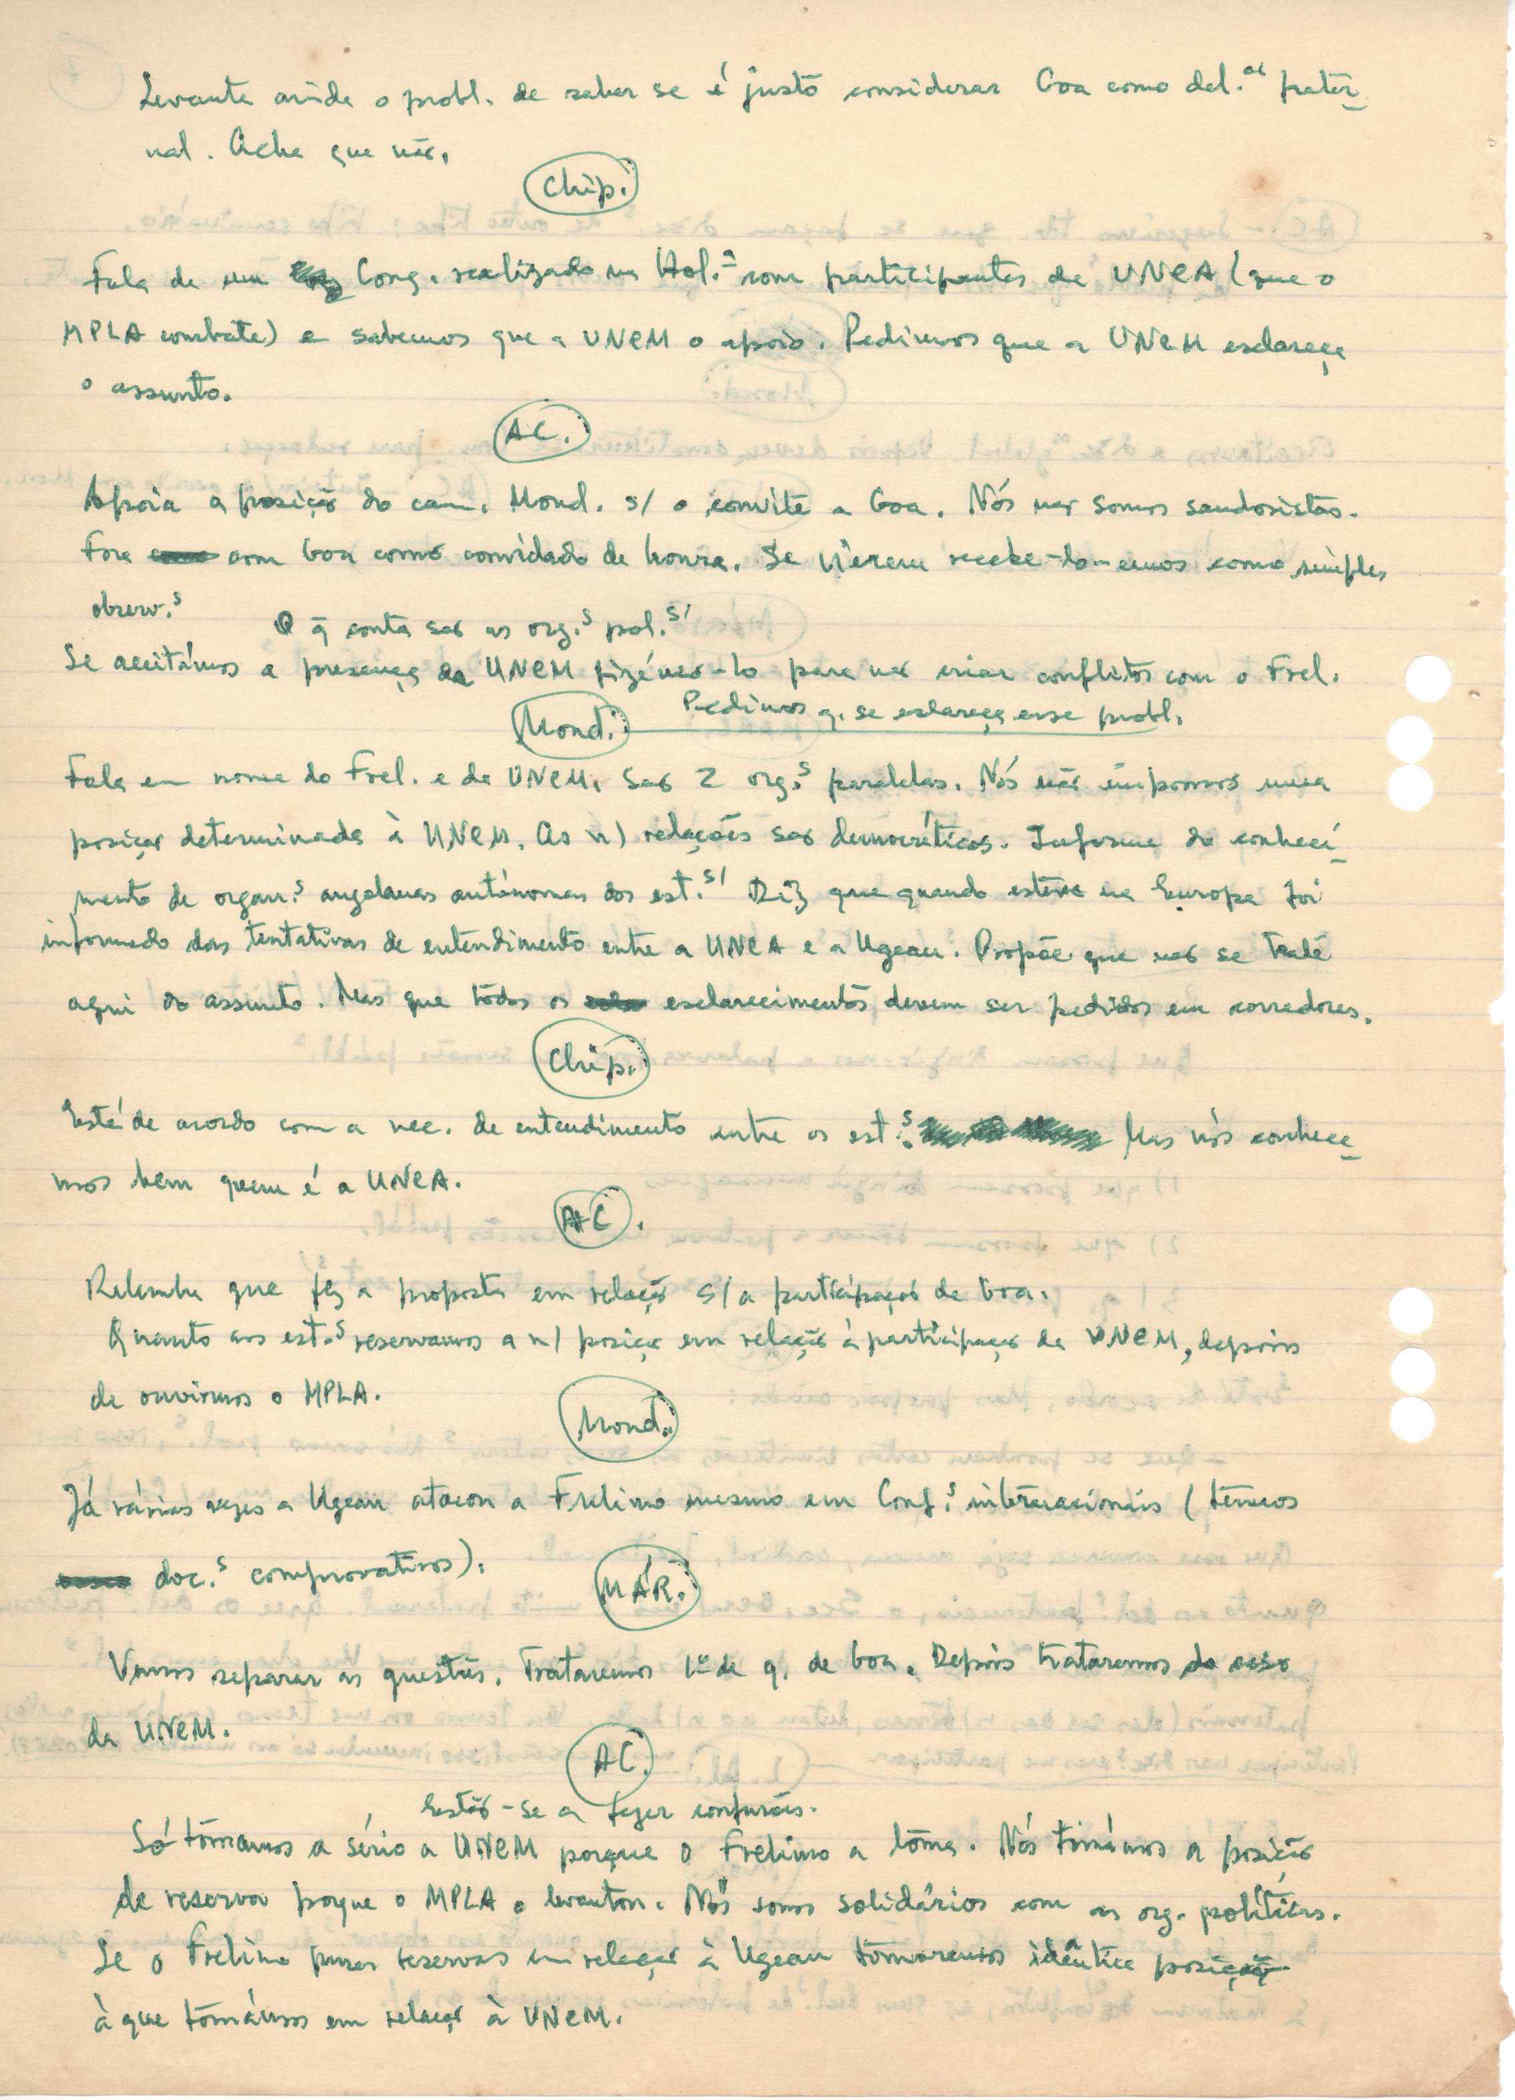 Levanta ainda o probl. de saber se é justo considerar Goa como del.ᵒˢ frater_
nal. Acha que não.
Chip.
Fala de um Cong. realizado na Hol.ª com participantes da UNEA (que o
MPLA combate) e sabemos que a UNEM o apoio. Pedimos que a UNEM esclareça
o assunto.
AC.
Apoia a posição do cam. Mond. s/ o convite a Goa. Nós não somos saudosistas.
Fora com Goa como convidado de honra. Se vierem recebe-lo-emos como simples
observ.ˢ O q̄ conta são as org.ˢ pol.ˢ/
Se aceitámos a presença da UNEM fizémos-lo para não criar conflitos com o Frel.
Pedimos q. se esclareça esse probl.
Mond.
Fala em nome do Frel. e da UNEM. São 2 org.ˢ paralelas. Nós não impomos uma
posição determinada à UNEM. As n/ relações são democráticas. Informa do conheci_
mento de organ.ˢ angolanas autónomas dos est.ˢ/ Diz que quando esteve na Europa foi
informado das tentativas de entendimento entre a UNEA e a Ugean. Propõe que não se trate
aqui do assunto. Mas que todos os esclarecimentos devem ser pedidos em corredores.
Chip.
Está de acordo com a nec. de entendimento entre os est.ˢ Mas nós conhece_
mos bem quem é a UNEA.
AC.
Relembra que fez a proposta em relação s/ a participação de Goa.
Quanto aos est.ˢ reservamos a n/ posição em relação à participação da UNEM, depois
de ouvirmos o MPLA.
Mond.
Já várias vezes a Ugean atacou a Frelimo mesmo em Conf.ˢ internacionais (temos
doc.ˢ comprovativos).
MÁR.
Vamos separar as questões. Trataremos 1º da q. de Goa. Depois trataremos do caso
da UNEM.
AC.
Estão-se a fazer confusões.
Só tomamos a sério a UNEM porque o Frelimo a toma. Nós tomámos a posição
de reserva porque o MPLA o levantou. Nós somos solidários com as org. políticas.
Se o Frelimo puser reservas em relação à Ugean tomaremos idêntica posição
à que tomámos em relação à UNEM.